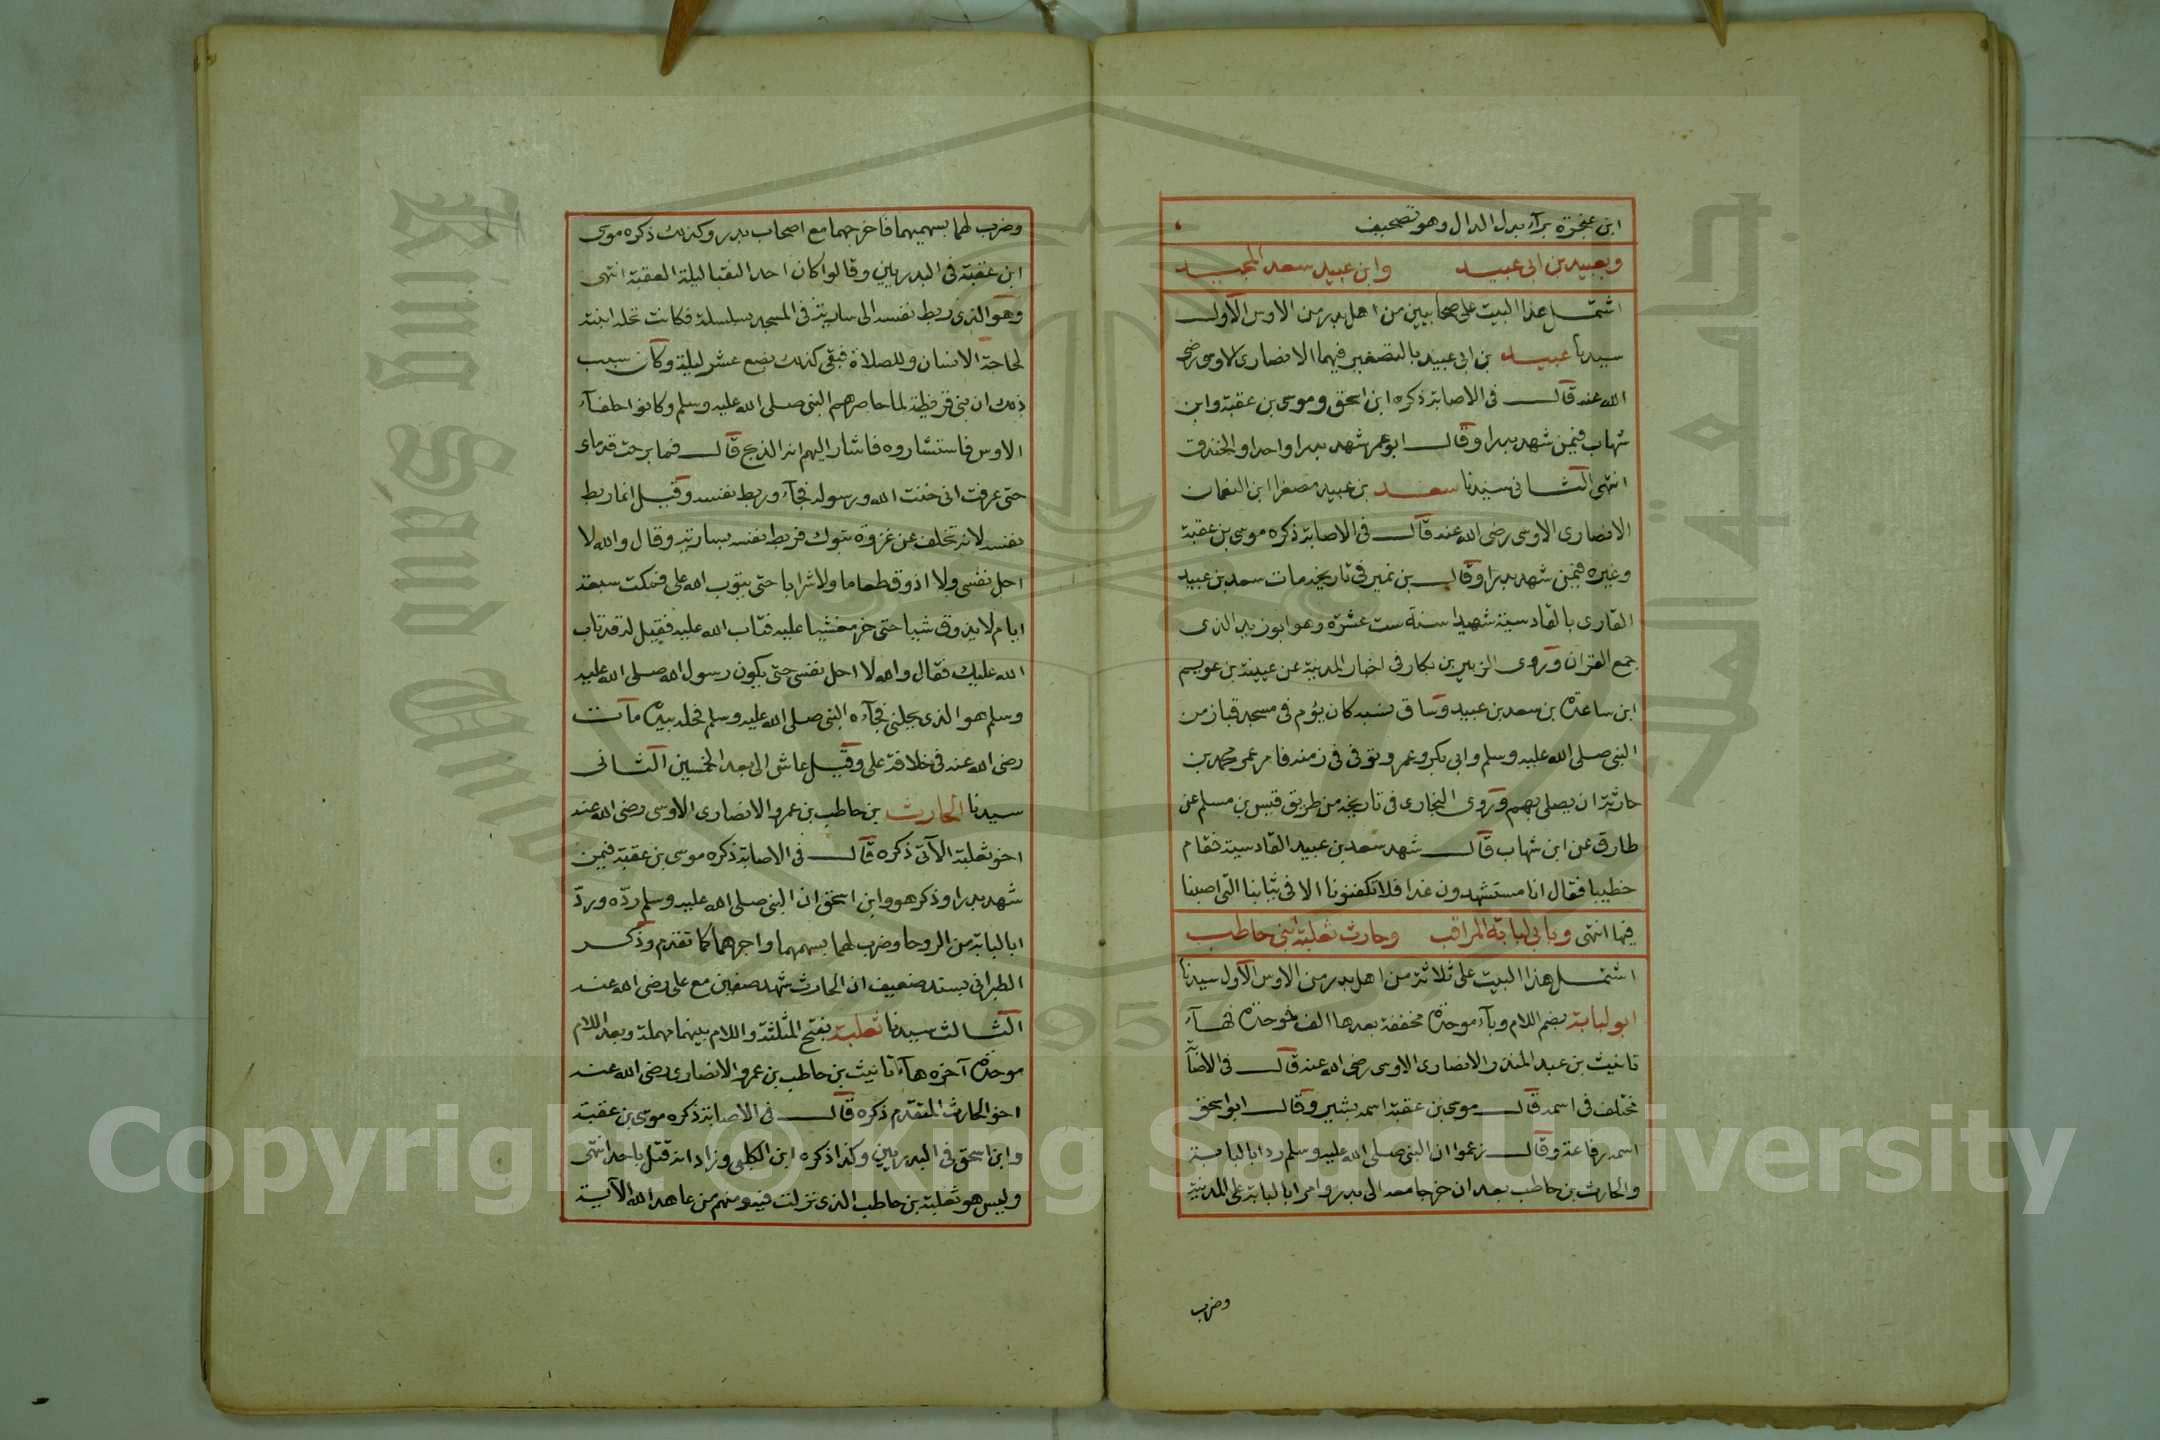 ابن عنجرة برآء بدل الدال وهو تصحيف
وبعبيد بن ابى عبيد وابن عبيد سعد المجيد
اشتمل هذا البيت على صحابيين من اهل بدر من الاوس الاول
سيدنا عبيد بن ابى عبيد بالتصغير فيهما الانصارى الاوسى رضى
الله عنه قال فى الاصابة ذكره ابن اسحق وموسى بن عقبة وابن
شهاب فيمن شهد بدرا وقال ابو عمر شهد بدرا واحدا والخندق
انتهى الثانى سيدنا سعد بن عبيد مصغرا ابن النعمان
الانصارى الاوسى رضى الله عنه قال فى الاصابة ذكره موسى بن عقبة
وغيره فيمن شهد بدرا وقال بن نمير فى تاريخه مات سعد بن عبيد
القارى بالقادسية شهيدا سنة ست عشرة وهو ابو زيد الذى
جمع القران وروى الزبير بن بكار فى اخبار المدينة عن عيينة بن عويم
ابن ساعدة بن سعد بن عبيد وساق نسبه كان يؤم فى مسجد قبا زمن
النبى صلى الله عليه وسلم وابى بكر وعمر وتوفى فى زمنه فامر عمر محمد بن
حارثة ان يصلى بهم وروى البخارى فى تاريخه من طريق قيس بن مسلم عن
طارق عن ابن شهاب قال شهد سعد بن عبيد القادسية فقام
خطيبا فقال انا مستشهدون غدا فلا تكفنونا الا فى ثيابنا التى اصبنا
فيها انتهى وبابى لبابة المراقب وحارث ثعلبة ابنى حاطب
اشتمل هذا البيت على ثلاثة من اهل بدر من الاوس الاول سيدنا
ابو لبابة بضم اللام وبآء موحدة مخففة بعدها الف فموحدة فهآء
تانيث بن عبد المنذر الانصارى الاوسى رضى الله عنه قال فى الاصآ
مختلف فى اسمه قال موسى بن عقبة اسمه بشير وقال ابو اسحق
اسمه رفاعة وقال زعموا ان النبى صلى الله عليه وسلم رد ابا لبابة
والحارث بن حاطب بعد ان خرجا معه الى بدر وامر ابا لبابة على المدينة
وضرب
وضرب لهما بسهميهما فاخرجهما مع اصحاب بدر وكذلك ذكره موسى
ابن عقبة فى البدريين وقالوا كان احد النقبا ليلة العقبة انتهى
وهو الذى ربط نفسه الى سارية فى المسجد بسلسلة فكانت تحله ابنته
لحاجة الانسان وللصلاة فبقى كذلك بضع عشر ليلة وكان سبب
ذلك ان بنى قريظة لما حاصرهم النبى صلى الله عليه وسلم وكانوا حلفآء
الاوس فاستشاروه فاشار اليهم انه الذبح قال فما برحت قدماى
حتى عرفت انى خنت الله ورسوله فجآء وربط نفسه وقيل انما ربط
نفسه لانه تخلف عن غزوة تبوك فربط نفسه بسارية وقال والله لا
احل نفسى ولا اذوق طعاما ولا شرابا حتى يتوب الله على فمكث سبعة
ايام لا يذوق شيا حتى خر مغشيا عليه فتاب الله عليه فقيل له قد تاب
الله عليك فقال والله لا احل نفسى حتى يكون رسول الله صلى الله عليه
وسلم هو الذى يحلنى فجآءه النبى صلى الله عليه وسلم فحله بيده مات
رضى الله عنه فى خلافة على وقيل عاش الى بعد الخمسين الثانى
سيدنا الحارث بن حاطب بن عمرو الانصارى الاوسى رضى الله عنه
اخو ثعلبة الآتى ذكره قال فى الاصابة ذكره موسى بن عقبة فيمن
شهد بدرا وذكر هو وابن اسحق ان النبى صلى الله عليه وسلم ردّه وردّ
ابا لبابة من الروحا وضرب لهما بسهمهما واجرهما كما تقدم وذكر
الطبرانى بسند ضعيف ان الحارث شهد صفين مع على رضى الله عنه
الثالث سيدنا ثعلبة بفتح المثلثة واللام بينهما مهملة وبعد اللام
موحدة آخره هآء تانيث بن حاطب بن عمرو الانصارى رضى الله عنه
اخو الحارث المتقدم ذكره قال فى الاصابة ذكره موسى بن عقبة
وابن اسحق فى البدريين وكذا ذكره ابن الكلبى وزاد انه قتل باحد انتهى
وليس هو ثعلبة بن حاطب الذى نزلت فيه ومنهم من عاهد الله الآية
Copyright © King Saud University